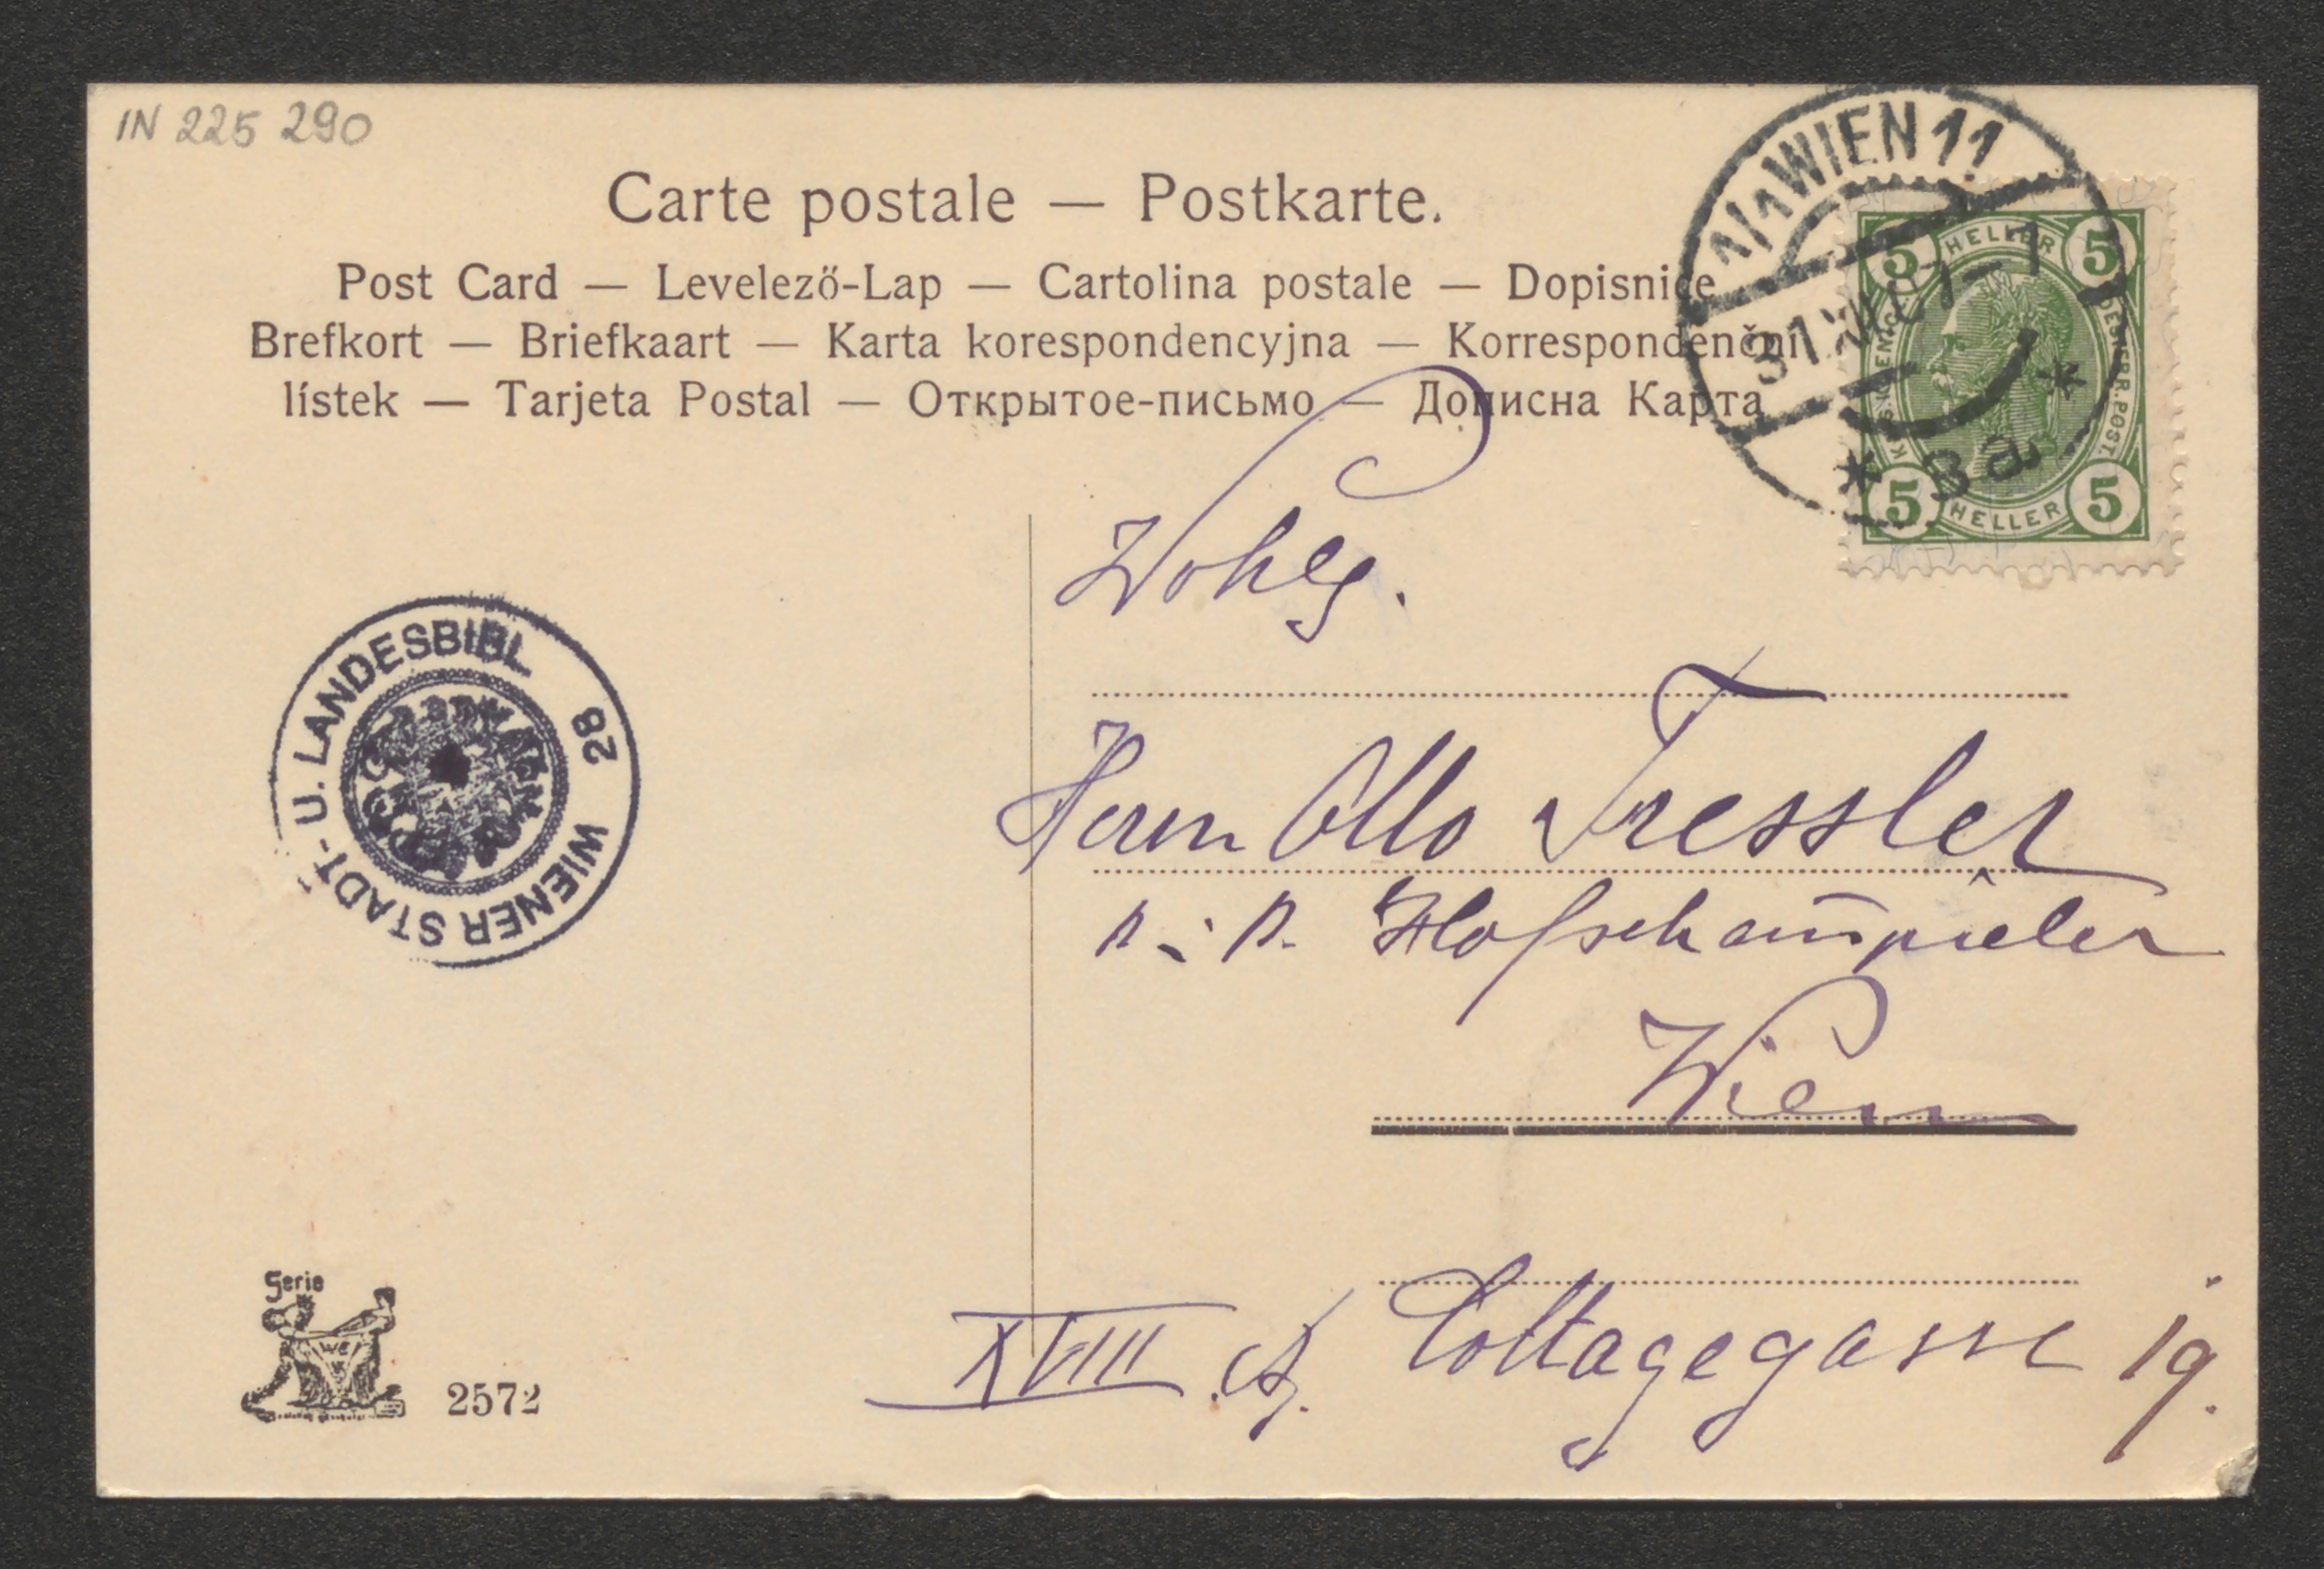 IN 225 290
Carte postale — Postkarte.
Post Card — Levelező-Lap — Cartolina postale — Dopisnice
Brefkort — Briefkaart — Karta korespondencyjna — Korrespondenční
lístek — Tarjeta Postal — Открытое-письмо — Дописна Карта
1/1 WIEN 11
* 8a *
5 HELLER 5
5 HELLER 5
Wohlg.
Herrn Otto Tressler
k. k. Hofschauspieler
Wien
XVIII. Cottagegasse 19.
WIENER STADT- U. LANDESBIBL
28
Serie
2572